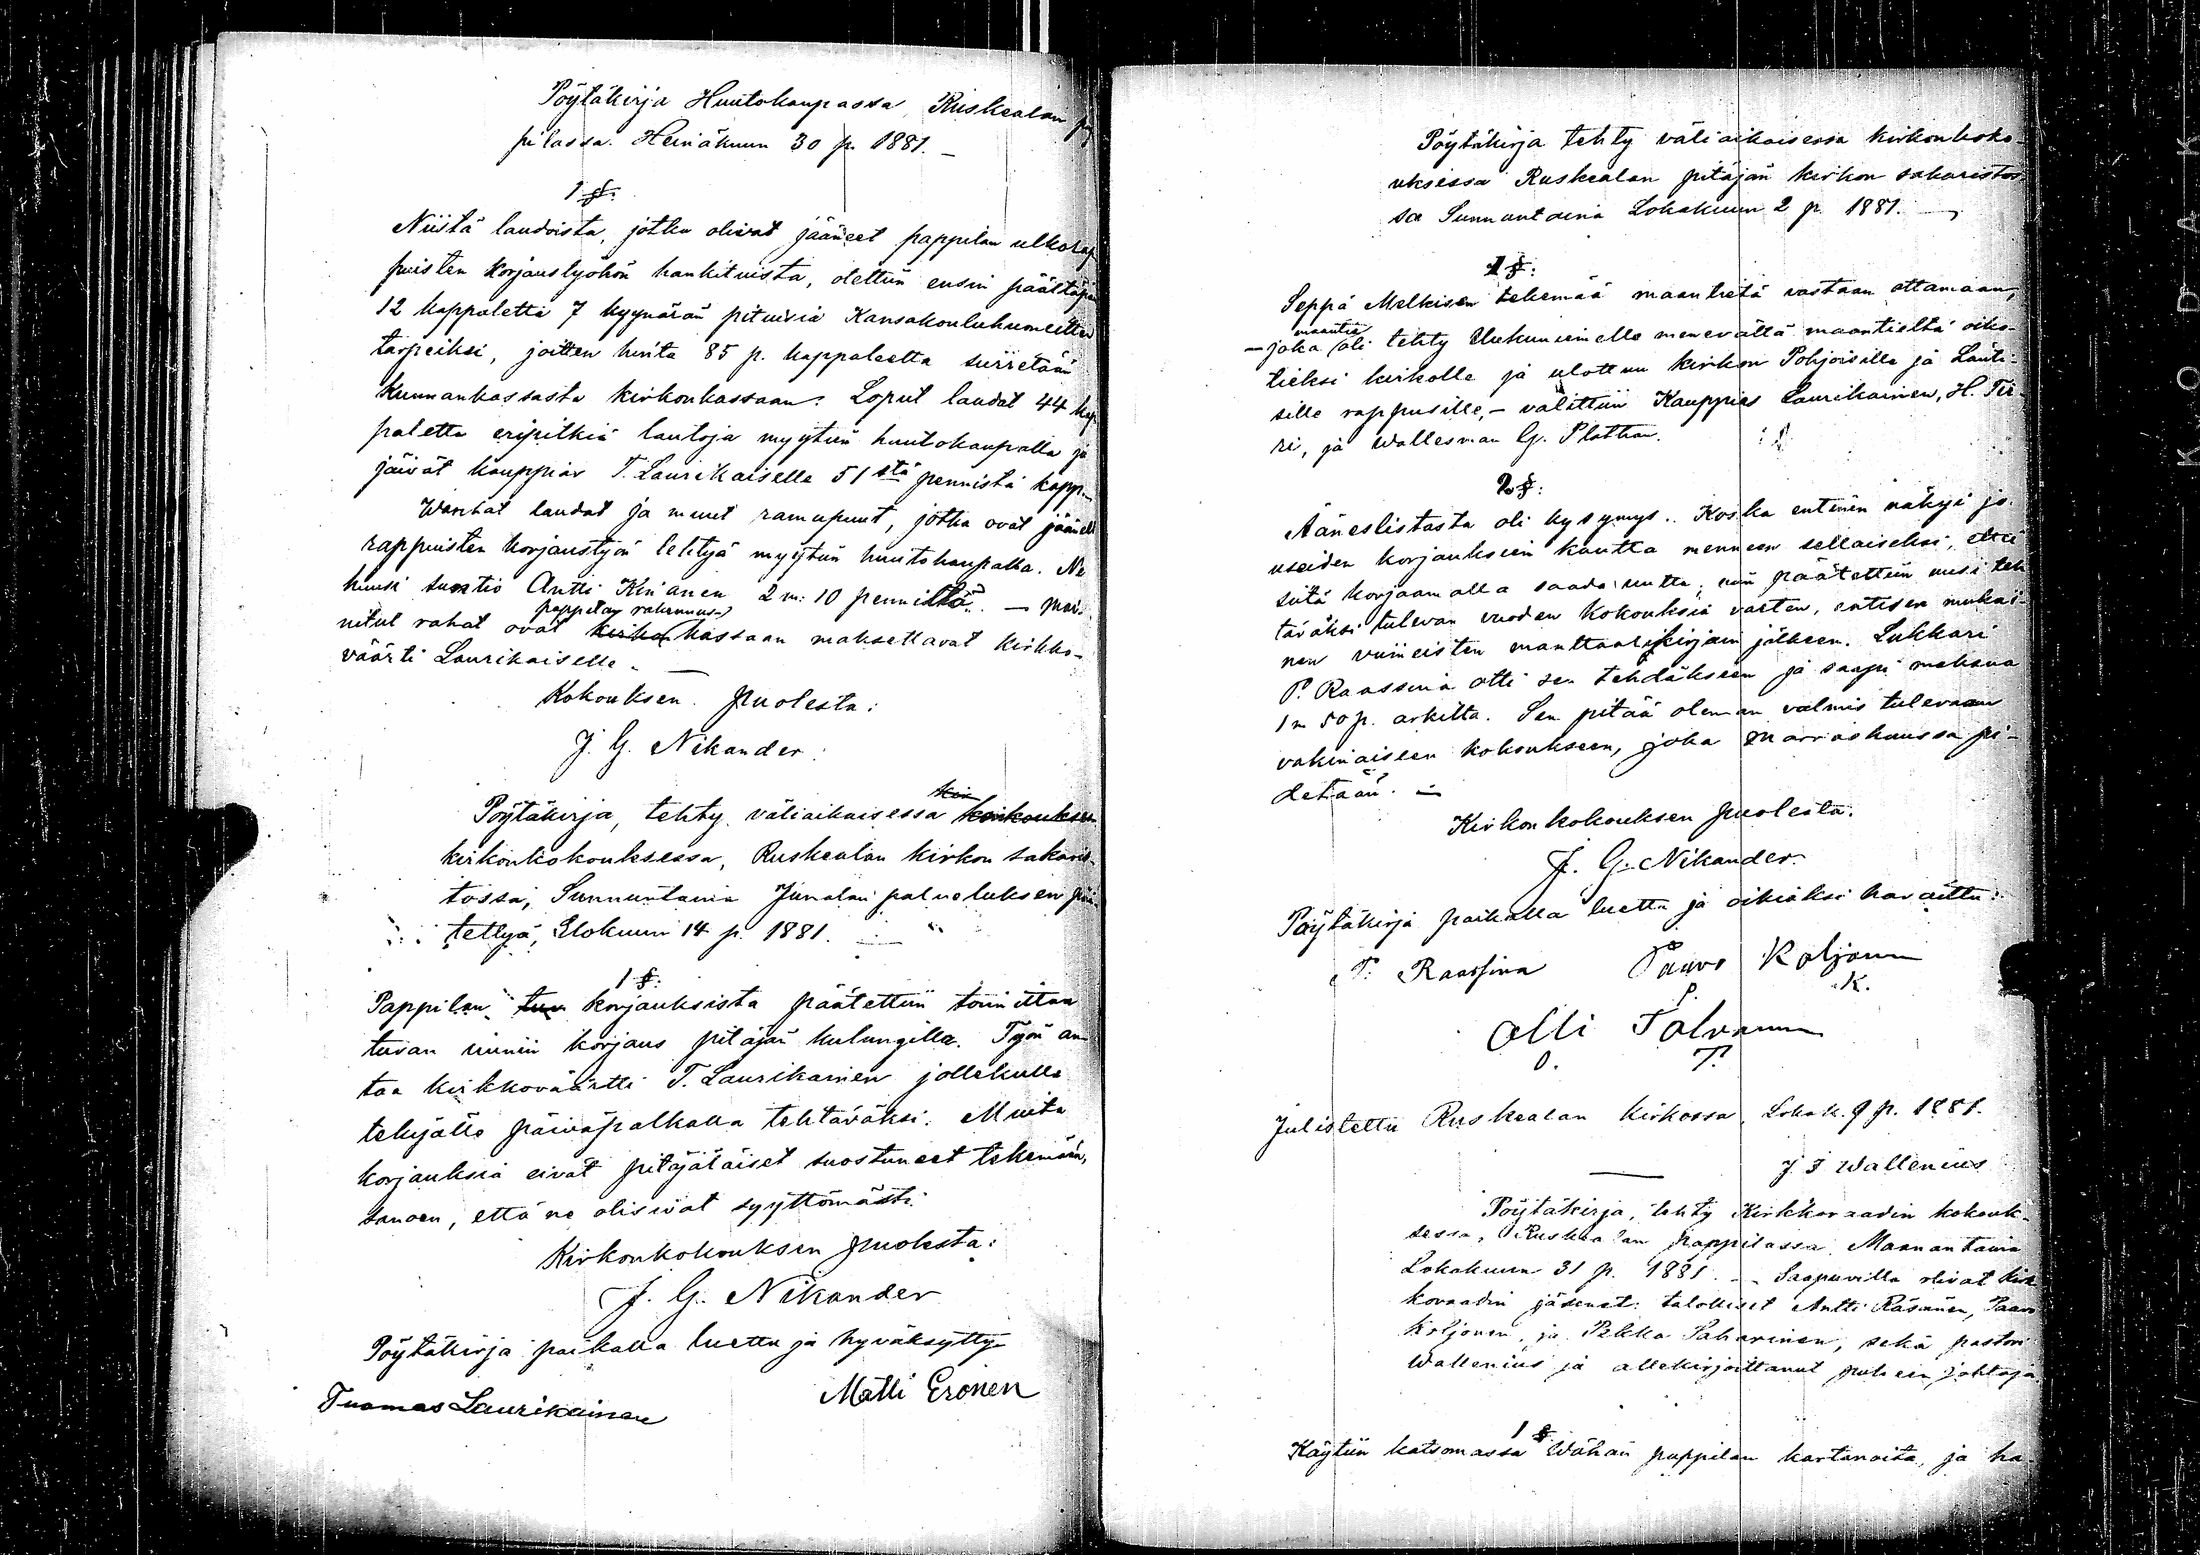 Pöytäkirja Huutokaupassa Ruskealan pap
pilassa Heinäkuun 30 p. 1881. —
1 §.
Niistä laudoista, jotka olivat jääneet pappilan ulkorap
puisten korjaustyöhön hankituista, otettiin ensin päältäpäin
12 kappaletta 7 kyynärän pituisia Kansakouluhuoneitten
tarpeiksi, joitten hinta 85 p. kappaleelta siirretään
Kunnankassasta kirkonkassaan. Loput laudat 44 kap
paletta eripitkiä lautoja myytiin huutokaupalla ja
jäivät kauppias T. Laurikaiselle 51 stä pennistä kapp. —
Wanhat laudat ja muut ramupuut, jotka ovat jääneet
rappuisten korjaustyön tehtyä myytiin huutokaupalla. Ne
huusi suntio Antti Kinanen 2 m: 10 pennistä. — Mai-
pappilan rahennus-
nitut rahat ovat kirkon kassaan maksettavat Kirkko-
väärti Laurikaiselle. —
Kokouksen puolesta:
J. G. Nikander.
kir
Pöytäkirja, tehty väliaikaisessa kirkouksen
kirkonkokouksessa, Ruskealan kirkon sakaris-
tossa, Sunnuntaina Jumalan palveluksen pää-
tettyä, Elokuun 14 p. 1881. —
1 §.
Pappilan tuv korjauksista päätettiin toimittaa
tuvan uunin korjaus pitäjän kulungilla. Työn an-
taa kirkkoväärtti T. Laurikainen jollekulle
tekijälle päiväpalkalla tehtäväksi. Muita
korjauksia eivät pitäjäläiset suostuneet tekemään,
sanoen, että ne olisivat syyttömästi.
Kirkonkokouksen puolesta:
J. G. Nikander
Pöytäkirja paikalla luettu ja hyväksytty
Tuomas Laurikainen Matti Eronen
Pöytäkirja tehty väliaikaisessa kirkonkoko-
uksessa Ruskealan pitäjän kirkon sakaristos
sa Sunnuntaina Lokakuun 2 p. 1881. —
1 §:
Seppä Melkisen tekemää maantietä vastaan ottamaan,
maantie
— joka oli tehty menevältä maantieltä oiko-
tieksi kirkolle ja ulottuu kirkon Pohjoisille ja Länti-
sille rappusille, — valittiin Kauppias Laurikainen, H. Tii-
ri, ja wallesman G. Plathan.
2 §:
Ääneslistasta oli kysymys. Koska entinen näkyi jo
useiden korjauksien kautta menneen sellaiseksi, ettei
siitä korjaamalla saada uutta, niin päätettiin uusi teh
täväksi tulevan vuoden kokouksia varten, entisen mukai-
nen viimeisten manttaalikirjain jälkeen. Lukkari
P. Raassina otti sen tehdäkseen ja saapi maksua
1 m 50 p. arkilta. Sen pitää oleman valmis tulevaan
vakinaiseen kokoukseen, joka Marraskuussa pi-
detään. —
Kirkonkokouksen puolesta.
J. G. Nikander.
Pöytäkirja paikalla luettu ja oikiaksi havaittu:
P. Raassina Paavo Koljonen
P. K.
Olli Tolvanen
O. T.
Julistettu Ruskealan kirkossa Lokak. 9 p. 1881.
J F Wallenius
Pöytäkirja, tehty Kirkkoraadin kokouk-
sessa, Ruskealan pappilassa Maanantaina
Lokakuun 31 p. 1881. — Saapuvilla olivat kirk
koraadin jäsenet: talolliset Antti Räsänen, Paavo
Koljonen, ja Pekka Saharinen, sekä pastori
Wallenius ja allekirjoittanut puheenjohtaja
1 §
Käytiin katsomassa Wähän pappilan kartanoita, ja ha-
KODAK